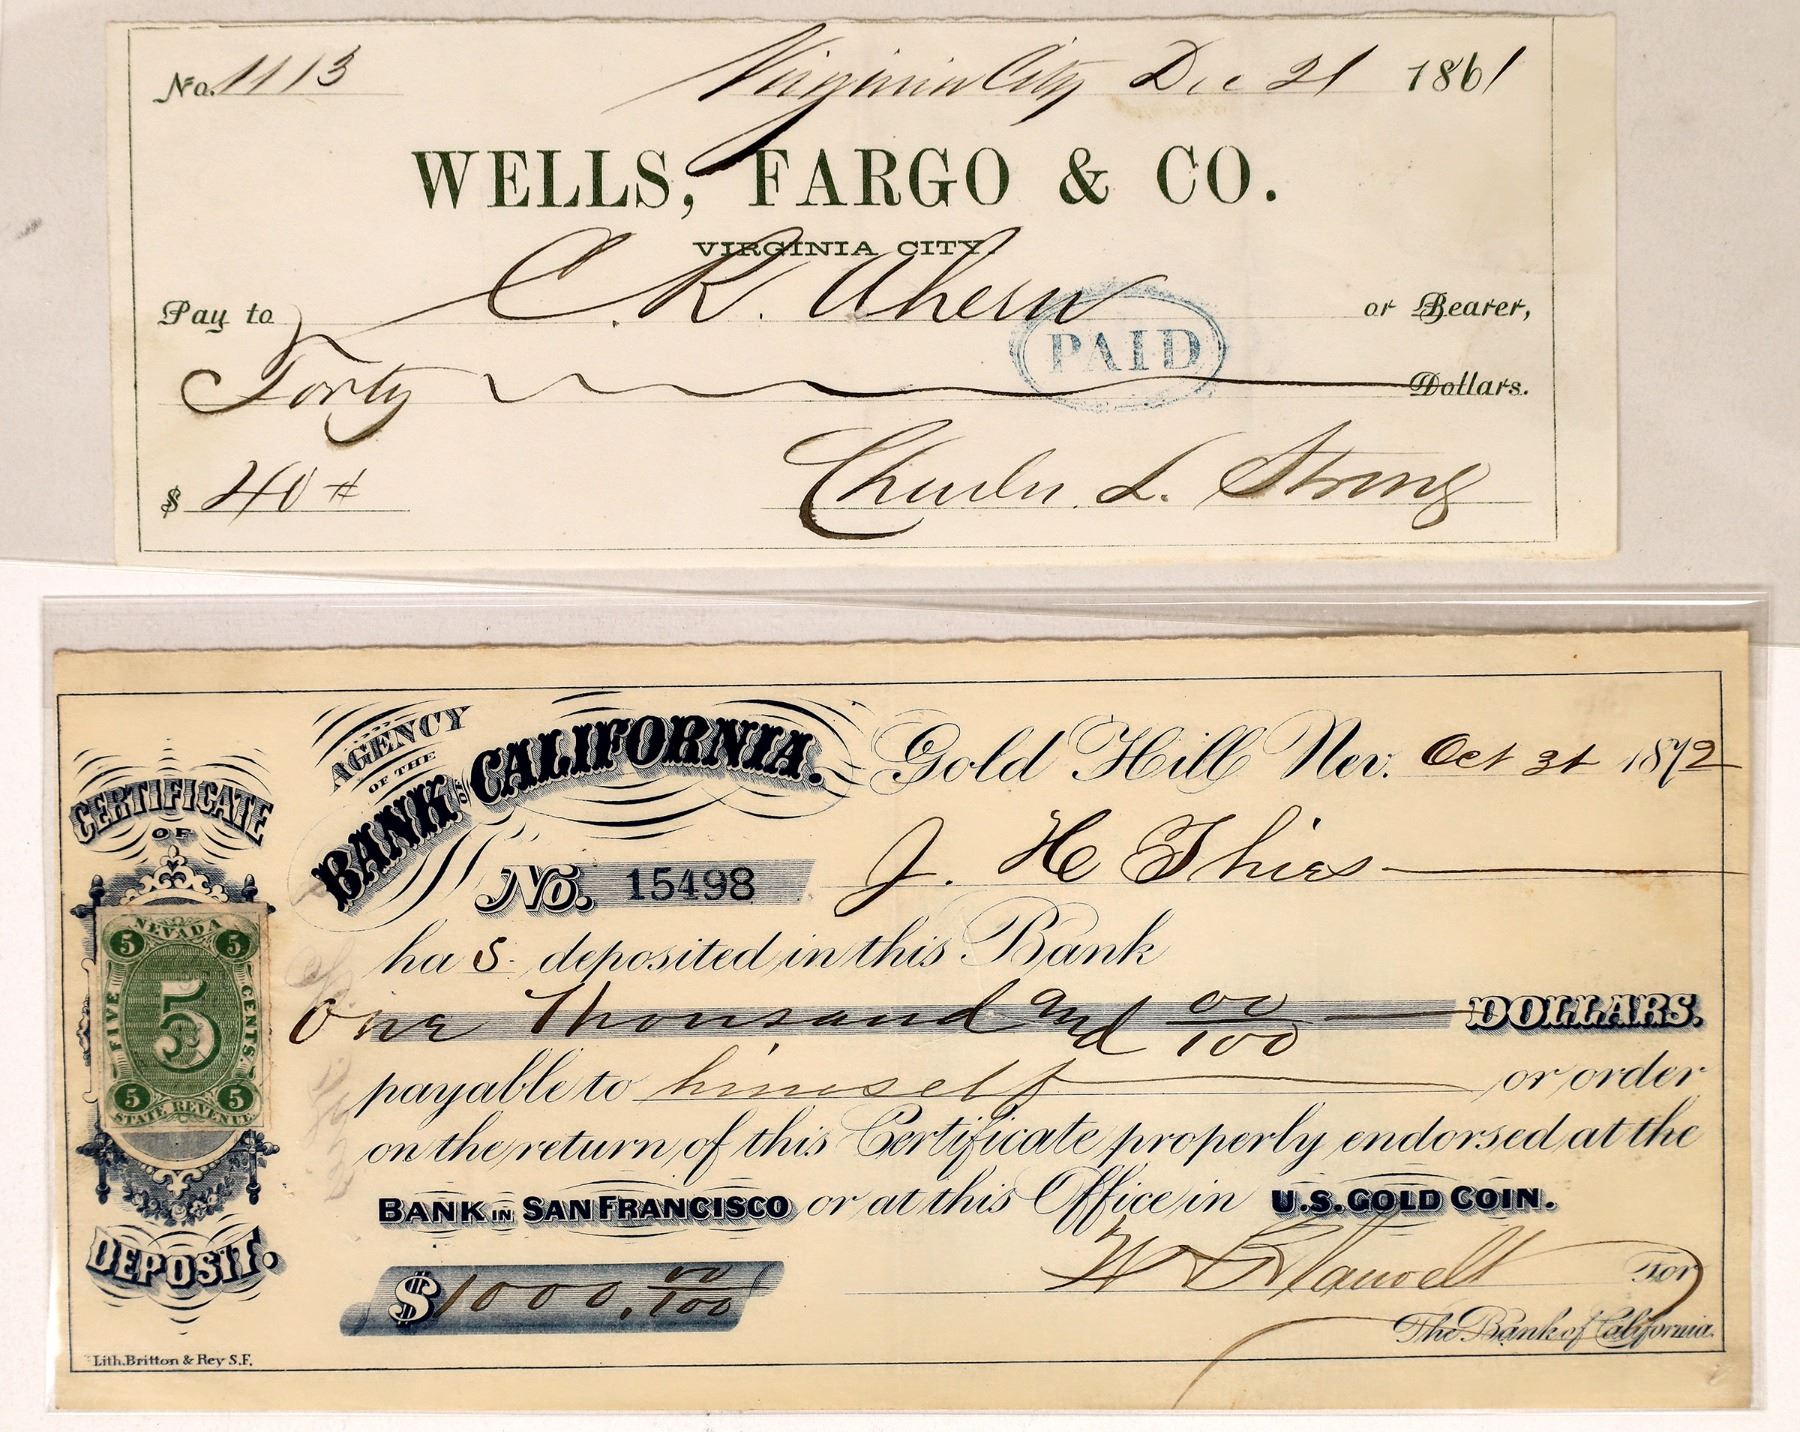 No. 1113 Virginia City Dec 21 1861
WELLS, FARGO & CO.
VIRGINIA CITY.
Pay to C. R. Ahern or Bearer,
PAID
Forty Dollars.
$ 40 #
Charles L. Strong
AGENCY
OF THE
BANK OF CALIFORNIA.
Gold Hill Nev. Oct 31 1872
CERTIFICATE
OF
DEPOSIT.
No. 15498 J. H Thies
has deposited in this Bank
One Thousand and 00/100 DOLLARS.
payable to himself or order
on the return of this Certificate properly endorsed at the
BANK IN SAN FRANCISCO or at this Office in U.S. GOLD COIN.
$1000.00/100
For
The Bank of California.
NEVADA
5 5
FIVE 5 CENTS.
5 5
STATE REVENUE
Lith. Britton & Rey S.F.